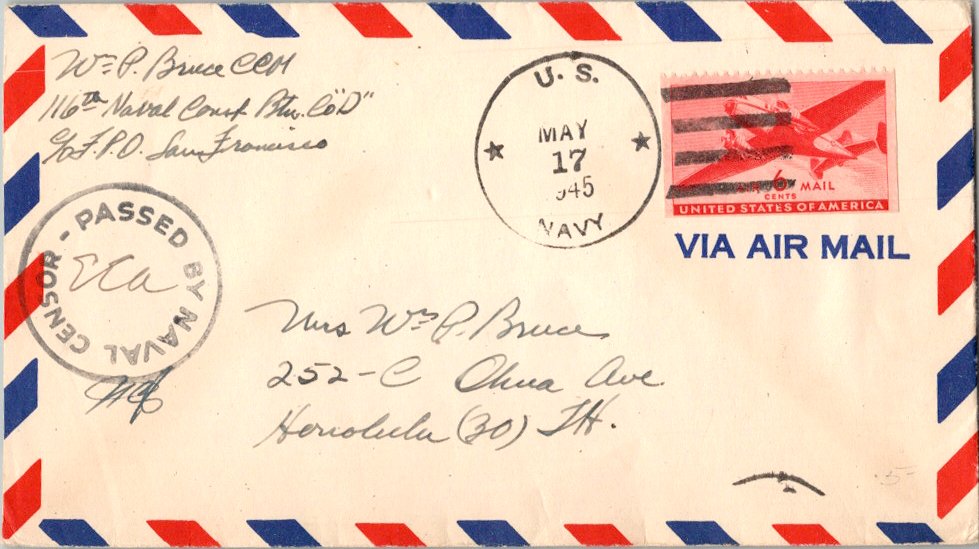 Wm P. Bruce CCM
116th Naval Const Btn. Co "D"
c/o F.P.O. San Francisco
U. S.
MAY
17
1945
NAVY
6
CENTS
MAIL
UNITED STATES OF AMERICA
VIA AIR MAIL
PASSED BY NAVAL CENSOR -
Mrs Wm P. Bruce
252-C Ohua Ave
Honolulu (30) T.H.
5-